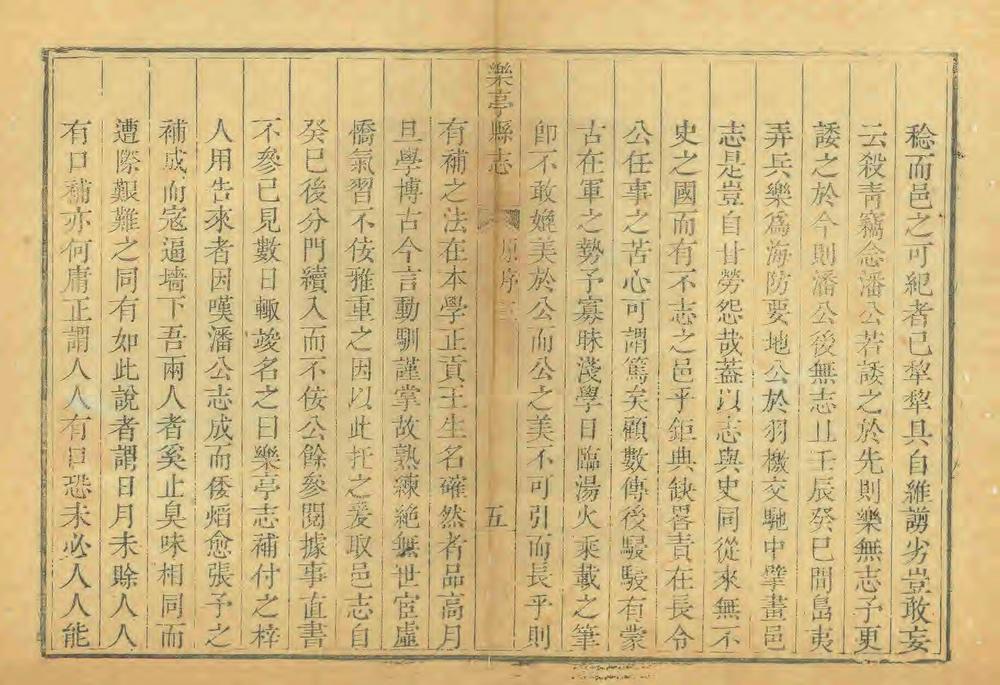 稔而邑之可紀者已犁犁具自維譾劣豈敢妄
云殺青竊念潘公若諉之於先則樂無志予更
諉之於今則潘公後無志且壬辰癸巳間島夷
弄兵樂爲海防要地公於羽檄交馳中擘畫邑
志是豈自甘勞怨哉葢以志與史同從來無不
史之國而有不志之邑乎鉅典缺畧責在長令
公任事之苦心可謂篤矣顧數傳後駸駸有蒙
古在軍之勢予寡昧淺學日臨湯火乘載之筆
卽不敢媲美於公而公之美不可引而長乎則
樂亭縣志 原序三 五
有補之法在本學正貢王生名確然者品高月
旦學博古今言動馴謹掌故熟練絶無世宦虛
憍氣習不佞雅重之因以此托之爰取邑志自
癸巳後分門續入而不佞公餘參閱據事直書
不參已見數日輙竣名之曰樂亭志補付之梓
人用告來者因嘆潘公志成而倭熖愈張予之
補成而寇逼墻下吾兩人者奚止臭味相同而
遭際艱難之同有如此說者謂日月未賒人人
有口補亦何庸正謂人人有口恐未必人人能